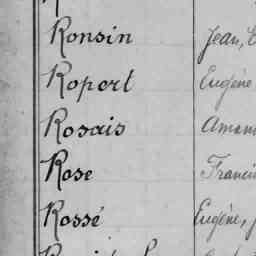 Ronsin Jean,
Ropert Eugène
Rosais
Rose
Rossé Eugène,